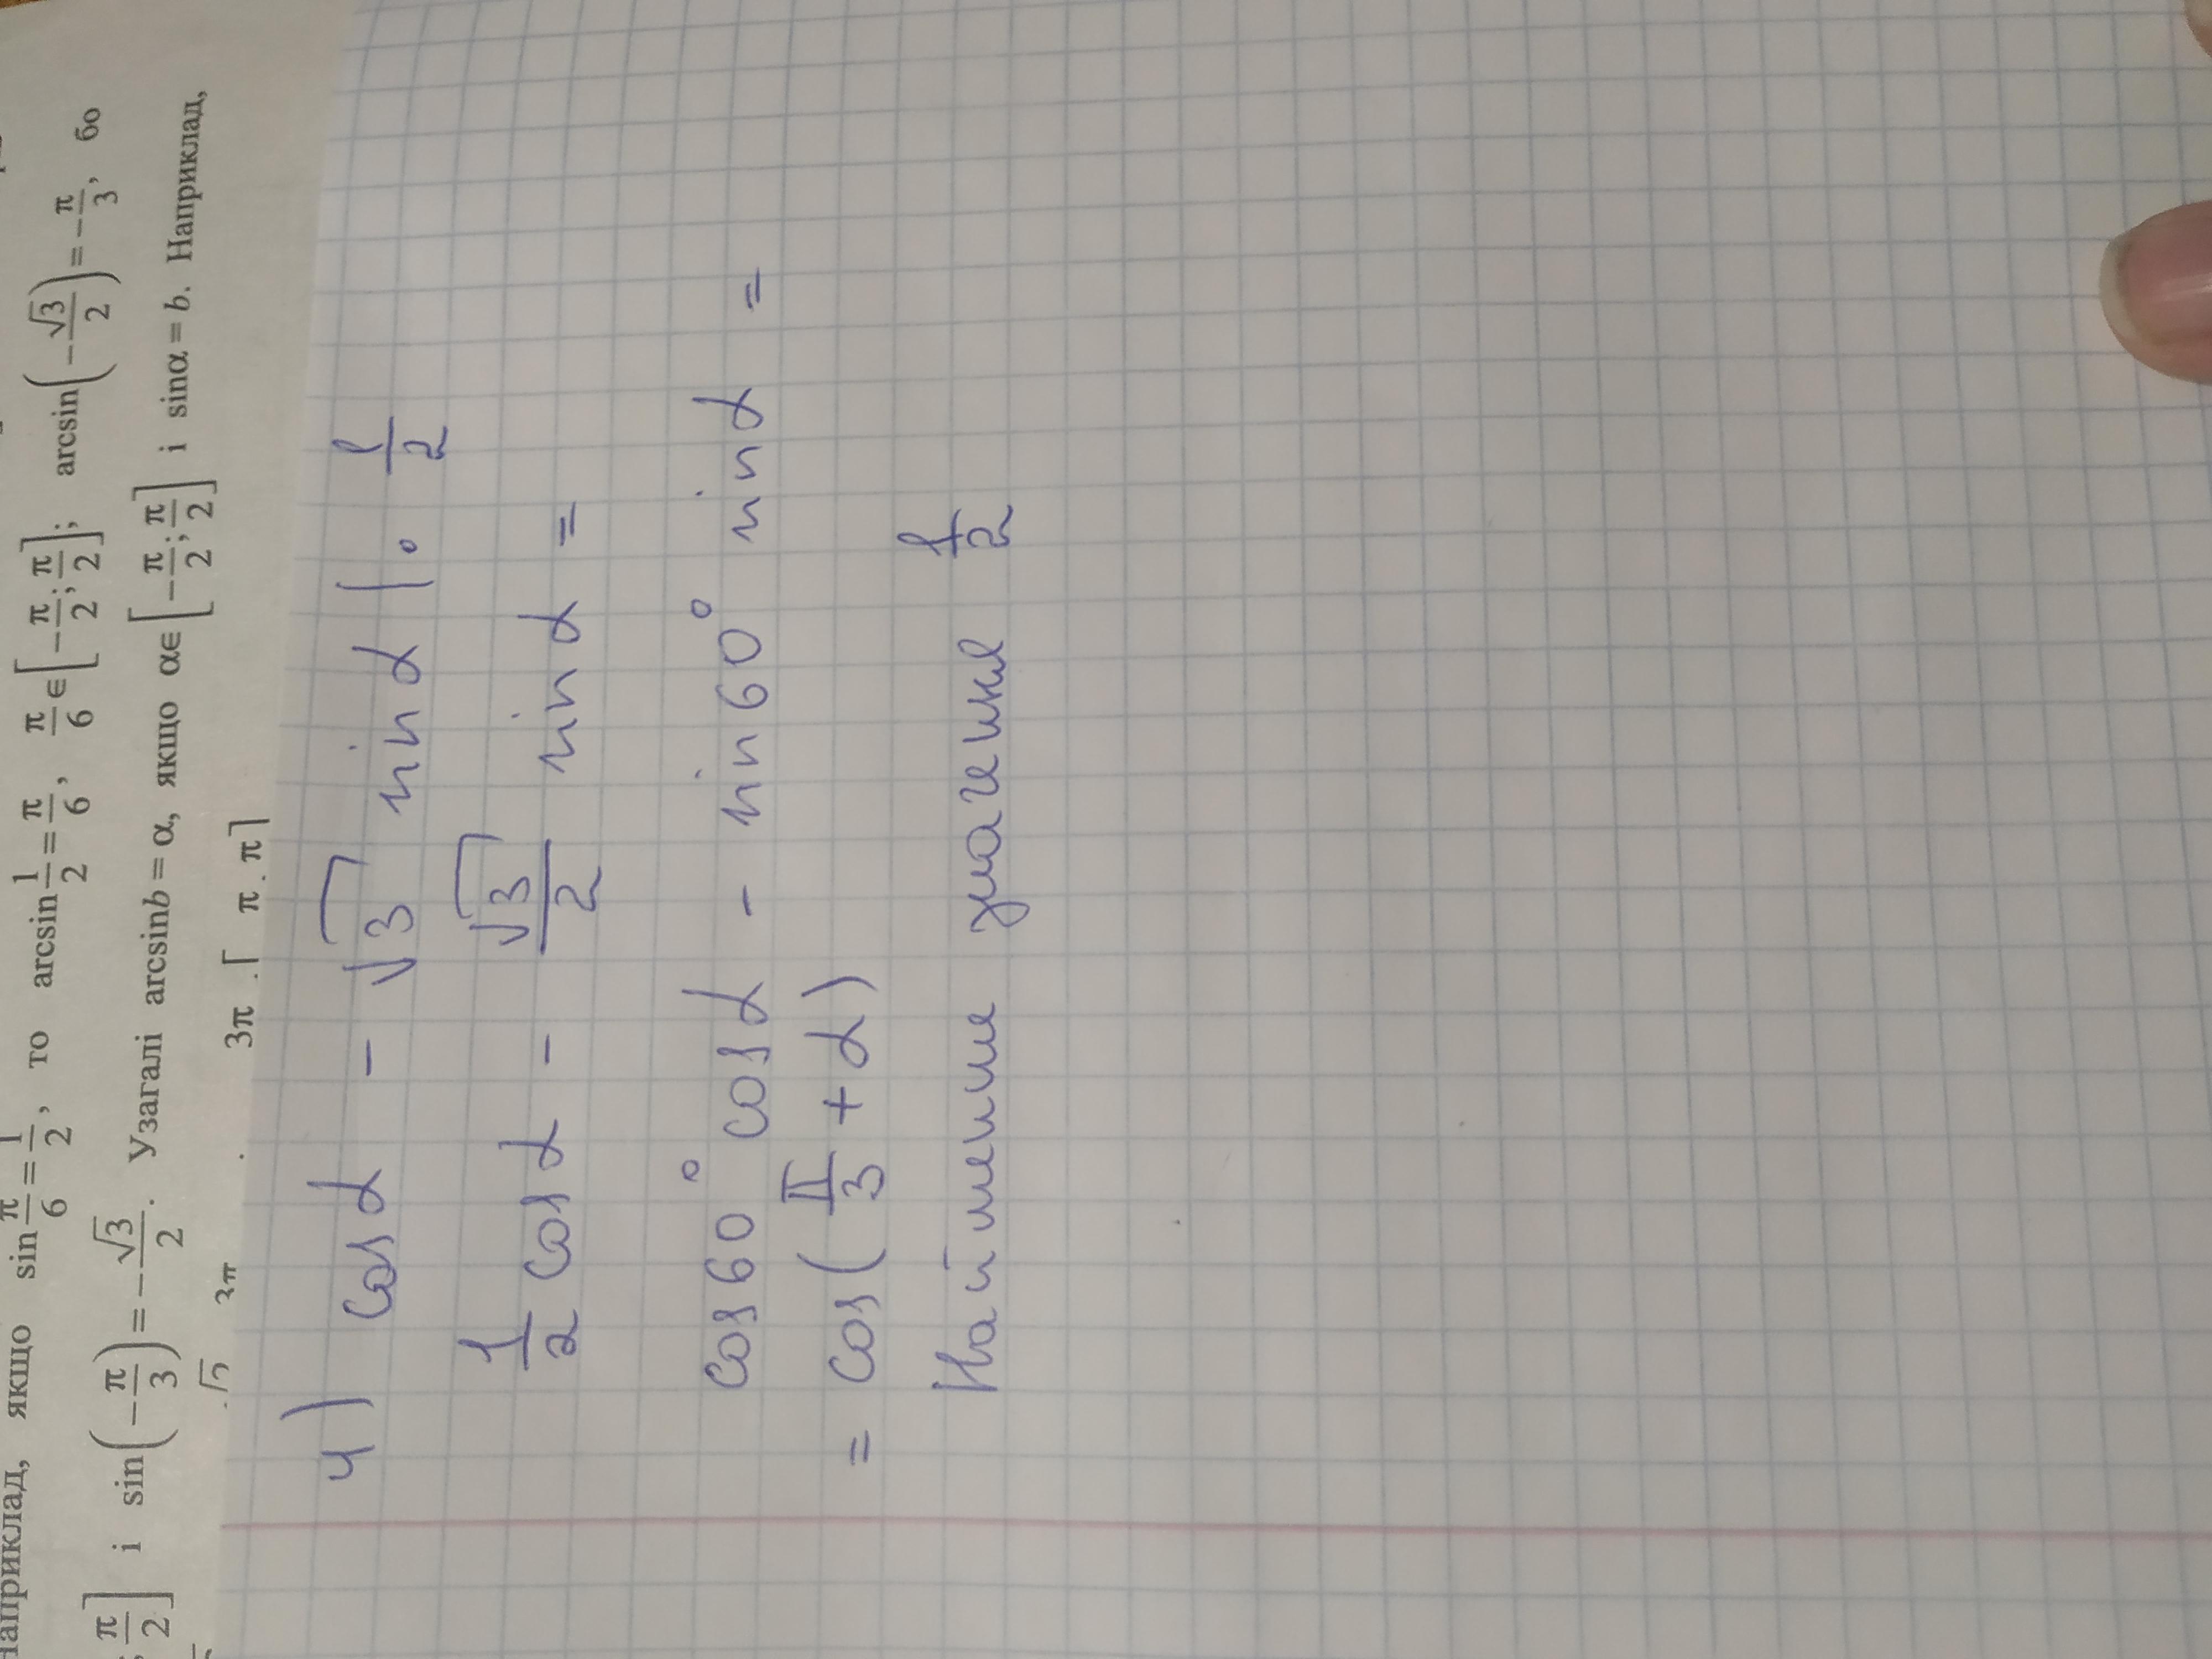 Наприклад, якщо sin π/6 = 1/2, то arcsin 1/2 = π/6, π/6 ∈ [-π/2; π/2]; arcsin(-√3/2) = -π/3, бо
π/2] і sin(-π/3) = -√3/2. Узагалі arcsinb = α, якщо α∈[-π/2; π/2] і sinα = b. Наприклад,
3π [π π]
4) cosα - √3 sinα |· 1/2
1/2 cosα - √3/2 sinα =
cos60° cosα - sin60° sinα =
= cos(π/3 + α)
Найменше значення 1/2